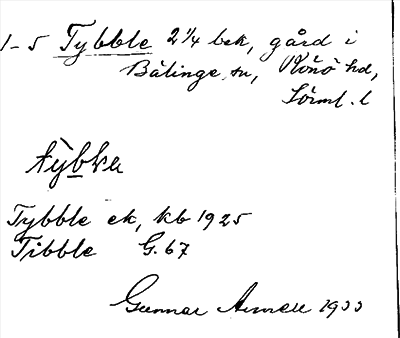 1-5 Tybble 2 1/4 bek, gård i
Bälinge sn, Rönö hd,
Sörml. l
Tybble ek, kb 1925
Tibble G. 67
Gunnar 1933